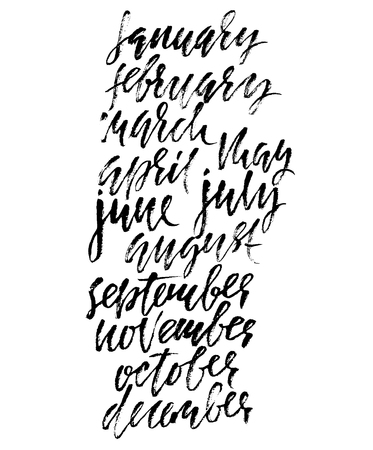 january
february
march
april may
june july
august
september
november
october
december